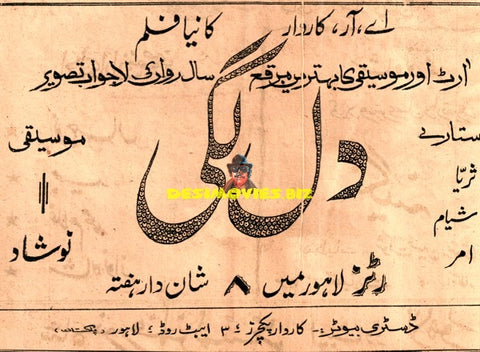 اے، آر، کاردار کا نیا فلم
آرٹ اور موسیقی کا بہترین مرقع سال رواں کی لاجواب تصویر
دل لگی
DESIMOVIES.BIZ
ستارے
ثریّا
شیام
امر
موسیقی
نوشاد
رٹز لاہور میں ۸ شان دار ہفتہ
ڈسٹری بیوٹر:- کاردار پکچرز ۳ ایبٹ روڈ لاہور (پاکستان)